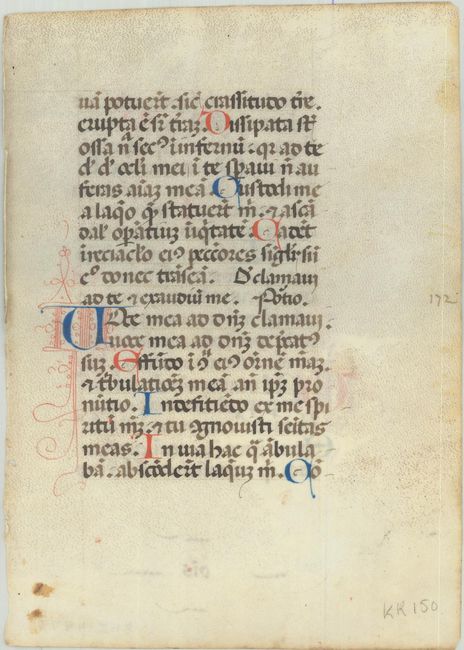 uā potuerūt. sic̄ crassitudo tr̄e.
erupta ē sr̄ t̄raz. Dissipata st̄
ossa n̄ sec̄ infernū. qr ad te
d̄e d̄e oculi mei ī te speraui n̄ au
feras aīaz meā. Custodi me
a laq̄o q̄ statuerūt m̄. ⁊ a scā
dal' op̄antiuz īiq̄tatē. Cadēt
ī reciac̄lo eiꝰ pecc̄ores sīgl'r sū
eḡo donec trāseā. Clamaui
ad te ⁊ exaudiui me. Ps̄
Uoce mea ad dn̄z clamaui.
uoce mea ad dn̄z dep̄catꝰ
suz. Effūdo ī 9sp̄u eiꝰ or̄onē mēaz.
⁊ t̄bulationēz meā añ ip̄z pro
nūtio. In deficiēdo ex me spi
ritū mēz. ⁊ tu 9gnouisti semitas
meas. In uia hac q̄ ābula
bā. abscōderūt laqueuz m̄. Cō
172
KK 150